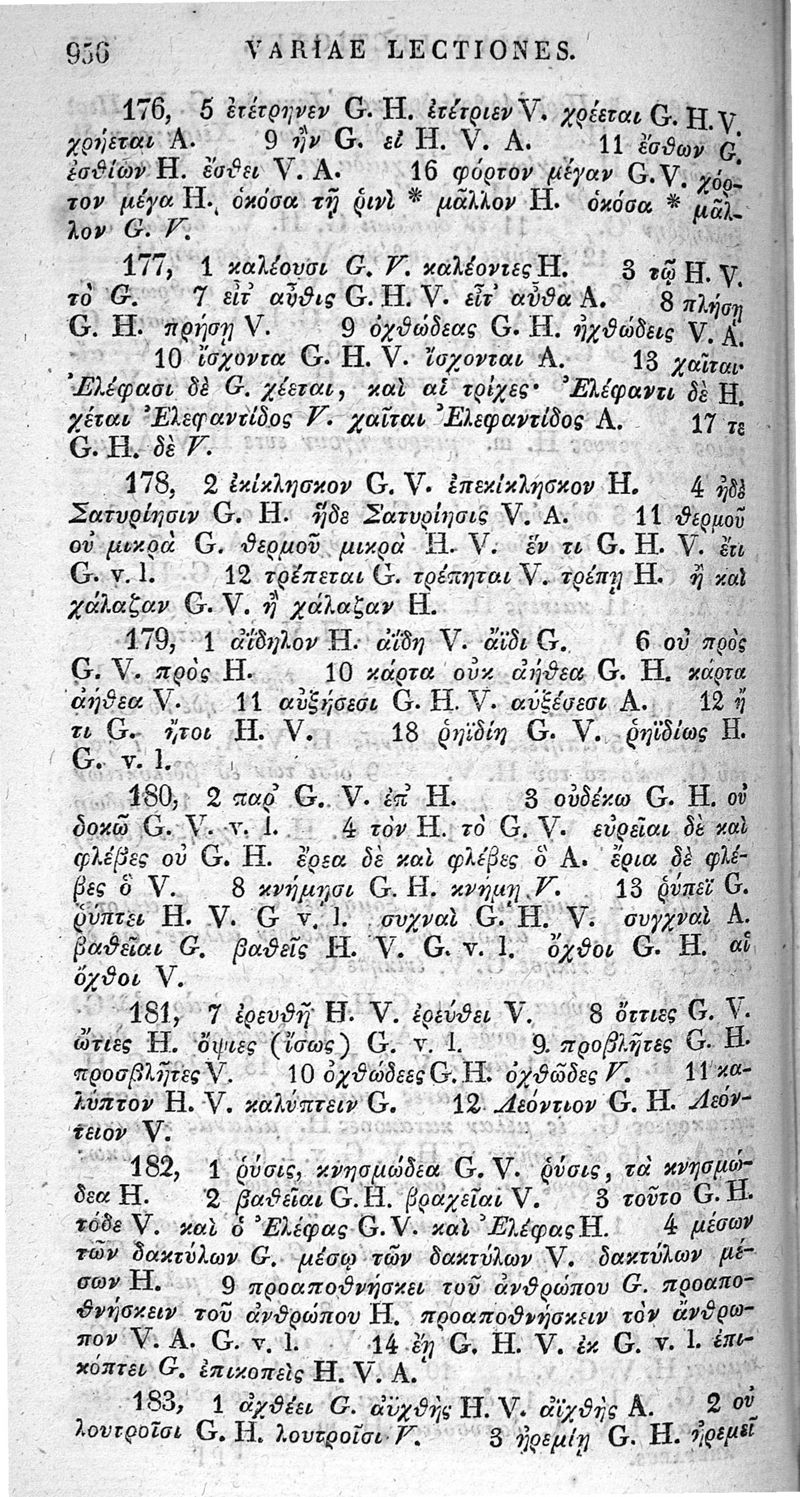 956 VARIAE LECTIONES.
176, 5 ἐτέτρηνεν G. H. ἐτέτριεν V. χρέεται G. H. V.
χρήεται A. 9 ἢν G. εἰ H. V. A. 11 ἔσθων G.
ἐσθίων H. ἔσθει V. A. 16 φόρτον μέγαν G. V. χόρ-
τον μέγα H. ὁκόσα τῇ ῥινὶ * μᾶλλον H. ὁκόσα * μᾶλ-
λον G. V.
177, 1 καλέουσι G. V. καλέοντες H. 3 τῷ H. V.
τὸ G. 7 εἶτ᾽ αὖθις G. H. V. εἶτ᾽ αὖθα A. 8 πλήσῃ
G. H. πρήσῃ V. 9 ὀχθώδεας G. H. ἠχθώδεις V. A.
10 ἴσχοντα G. H. V. ἴσχονται A. 13 χαῖται·
Ἐλέφασι δὲ G. χέεται, καὶ αἱ τρίχες· Ἐλέφαντι δὲ H.
χέται Ἐλεφαντίδος V. χαῖται Ἐλεφαντίδος A. 17 τε
G. H. δὲ V.
178, 2 ἐκίκλησκον G. V. ἐπεκίκλησκον H. 4 ἠδὲ
Σατυρίησιν G. H. ἥδε Σατυρίησις V. A. 11 θερμοῦ
οὐ μικρὰ G. θερμοῦ μικρὰ H. V. ἕν τι G. H. V. ἔτι
G. v. l. 12 τρέπεται G. τρέπηται V. τρέπῃ H. ἢ καὶ
χάλαζαν G. V. ἢ χάλαζαν H.
179, 1 ἀΐδηλον H. ἀΐδη V. ἄϊδι G. 6 οὐ πρὸς
G. V. πρὸς H. 10 κάρτα οὐκ ἀήθεα G. H. κάρτα
ἀήθεα V. 11 αὐξήσεσι G. H. V. αὐξέσεσι A. 12 ἤ
τι G. ἤτοι H. V. 18 ῥηϊδίη G. V. ῥηϊδίως H.
G. v. l.
180, 2 παρ᾽ G. V. ἐπ᾽ H. 3 οὐδέκω G. H. οὐ
δοκῶ G. V. v. l. 4 τὸν H. τὸ G. V. εὐρεῖαι δὲ καὶ
φλέβες οὐ G. H. ἔρεα δὲ καὶ φλέβες ὃ A. ἔρια δὲ φλέ-
βες ὃ V. 8 κνήμησι G. H. κνημη V. 13 ῥύπεϊ G.
ῥύπτει H. V. G v. l. συχναὶ G. H. V. συγχναὶ A.
βαθεῖαι G. βαθεῖς H. V. G. v. l. ὄχθοι G. H. αἱ
ὄχθοι V.
181, 7 ἐρευθῆ H. V. ἐρεύθει V. 8 ὄττιες G. V.
ὤτιες H. ὄψιες (ἴσως) G. v. l. 9. προβλῆτες G. H.
προσβλῆτες V. 10 ὀχθώδεες G. H. ὀχθῶδες V. 11 κα-
λύπτον H. V. καλύπτειν G. 12 Λεόντιον G. H. Λεόν-
τειον V.
182, 1 ῥύσις, κνησμώδεα G. V. ῥύσις, τὰ κνησμώ-
δεα H. 2 βαθεῖαι G. H. βραχεῖαι V. 3 τοῦτο G. H.
τόδε V. καὶ ὁ Ἐλέφας G. V. καὶ Ἐλέφας H. 4 μέσων
τῶν δακτύλων G. μέσῳ τῶν δακτύλων V. δακτύλων μέ-
σων H. 9 προαποθνήσκει τοῦ ἀνθρώπου G. προαπο-
θνήσκειν τοῦ ἀνθρώπου H. προαποθνήσκειν τὸν ἄνθρω-
πον V. A. G. v. l. 14 ἔῃ G. H. V. ἐκ G. v. l. ἐπι-
κόπτει G. ἐπικοπεὶς H. V. A.
183, 1 ἀχθέει G. ἀϋχθὴς H. V. ἀϊχθὴς A. 2 οὐ
λουτροῖσι G. H. λουτροῖσι V. 3 ἠρεμίῃ G. H. ἠρεμεῖ